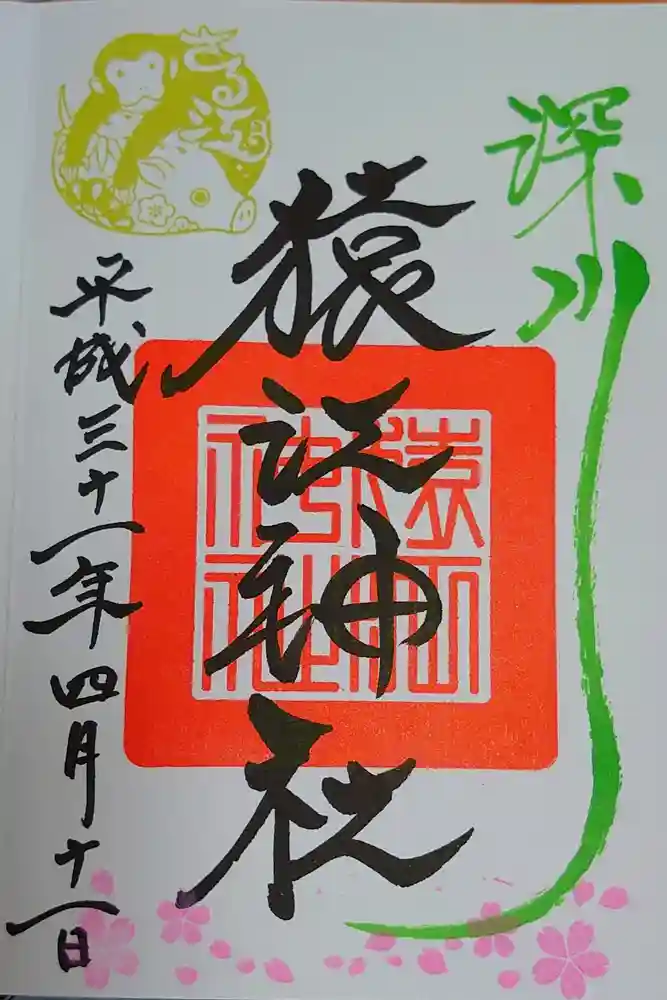 深川
猿江神社
猿江神社
平成三十一年四月十一日
さる江